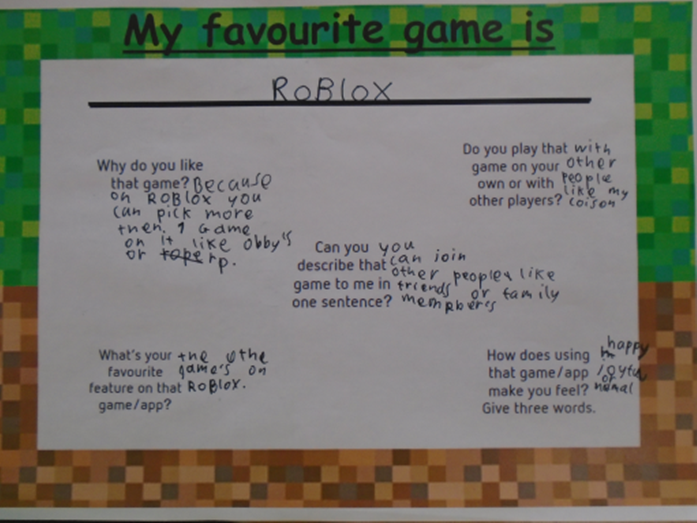 My favourite game is
RoBlox
Why do you like
that game? Because
on RoBlox you
can pick more
then 1 Game
on it like obby's
or rp.
Do you play that with
game on your other
own or with people
other players? like my
coison
Can you you
describe that can join
game to me in other people like
one sentence? friends or family
memrber's
What's your the othe
favourite game's on
feature on that RoBlox.
game/app?
How does using happy
that game/app joyful
make you feel? or nomal
Give three words.